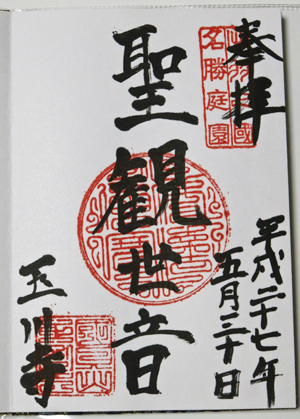 奉拝
名勝庭園
聖観世音
平成二十七年
五月三十日
玉川寺